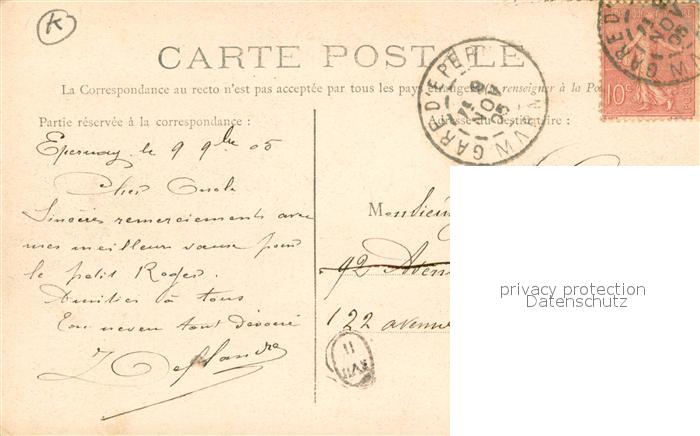 K
CARTE POSTALE
La Correspondance au recto n'est pas acceptée par tous les pays étrangers (se renseigner à la Po
Partie réservée à la correspondance :
Adresse du destinataire :
GARE D'EPERNAY
NOV
05
10c
Epernay, le 9 9bre 05
Cher Oncle
Sincères remerciements avec
mes meilleurs vœux pour
le petit Roger.
Amitiés à tous
Ton neveu tout dévoué
Monsieur
92 Aven
122 avenue
privacy protection
Datenschutz